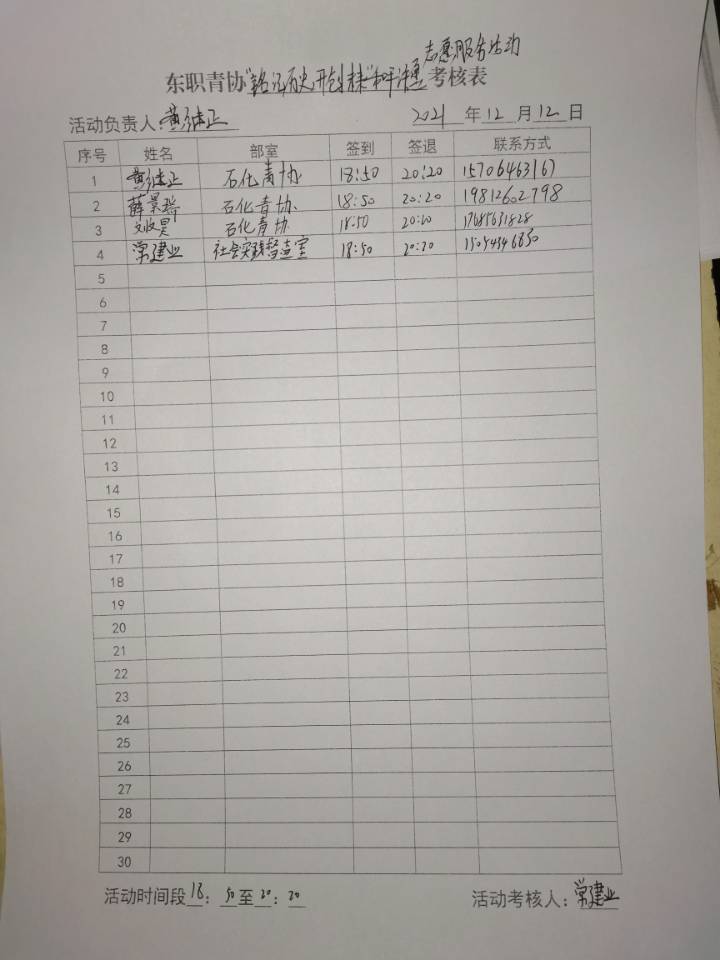 志愿服务活动
东职青协"铭记历史开创未来"和平 考核表
活动负责人:黄继正 2021年12月12日
序号 姓名 部室 签到 签退 联系方式
1 黄继正 石化青协 18:50 20:20 15706463167
2 薛景瑞 石化青协 18:50 20:20 19812602798
3 石化青协 18:50 20:20 17685631828
4 常建业 社会实践督查室 18:50 20:20
5
6
7
8
9
10
11
12
13
14
15
16
17
18
19
20
21
22
23
24
25
26
27
28
29
30
活动时间段18:50至20:20 活动考核人:常建业